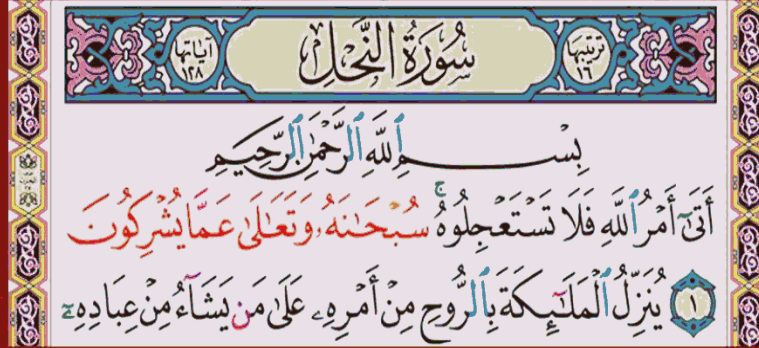 ترتيبها ١٦ سُورَةُ النَّحْلِ آياتها ١٢٨
بِسْمِ ٱللَّهِ ٱلرَّحْمَٰنِ ٱلرَّحِيمِ
أَتَىٰٓ أَمْرُ ٱللَّهِ فَلَا تَسْتَعْجِلُوهُ ۚ سُبْحَانَهُۥ وَتَعَالَىٰ عَمَّا يُشْرِكُونَ
١ يُنَزِّلُ ٱلْمَلَٰٓئِكَةَ بِٱلرُّوحِ مِنْ أَمْرِهِۦ عَلَىٰ مَن يَشَآءُ مِنْ عِبَادِهِۦٓ